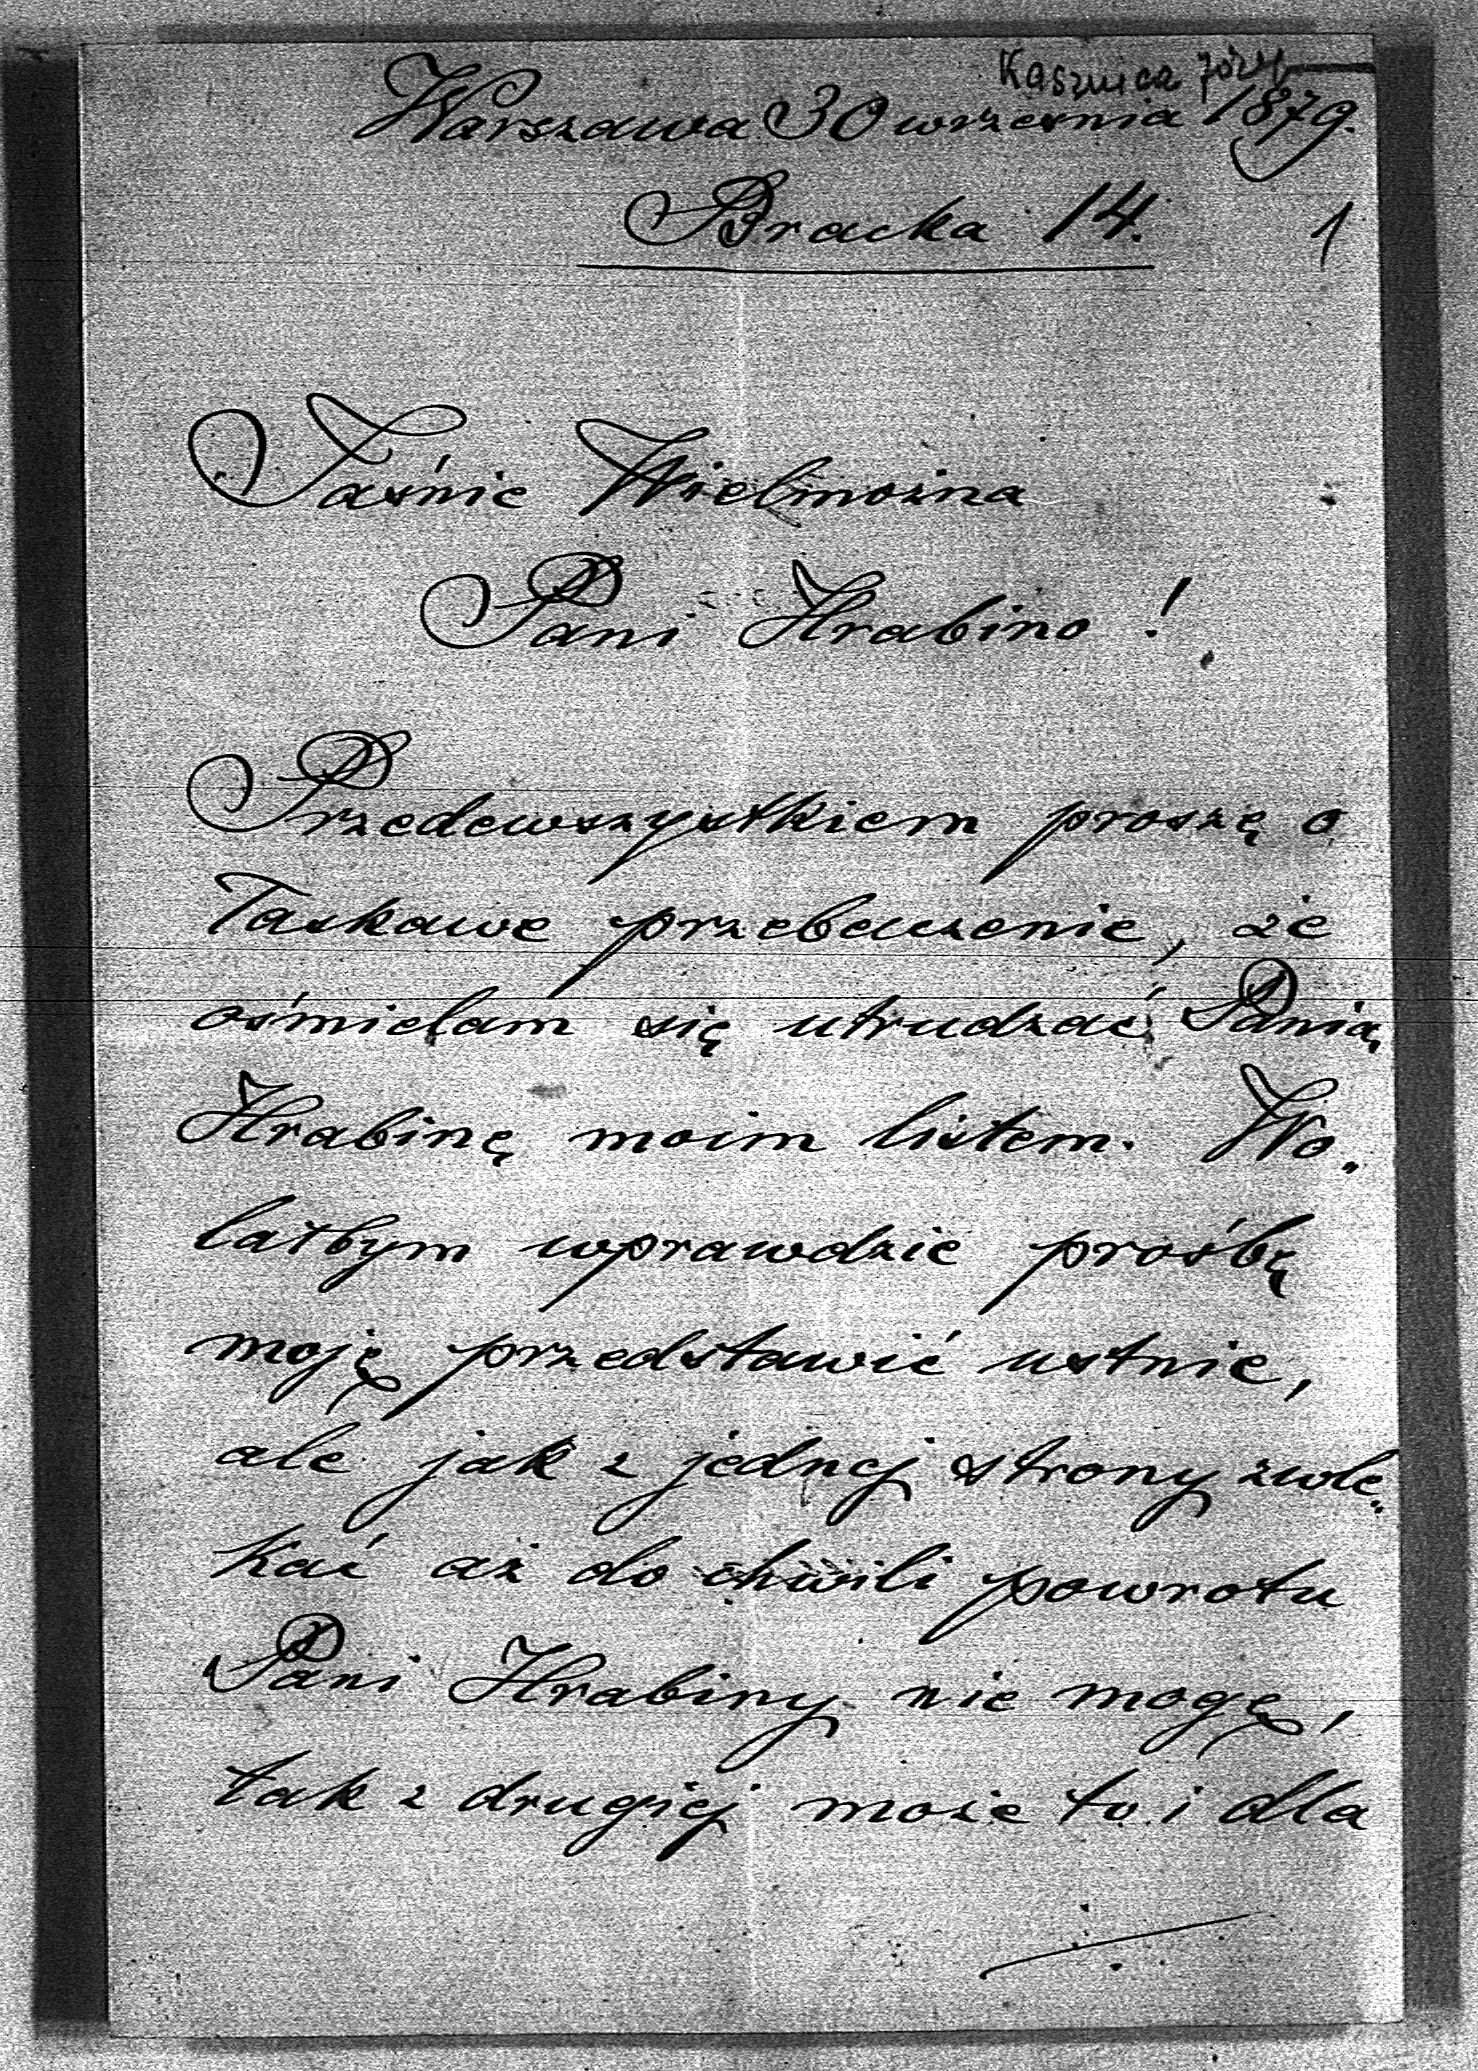 Kasznica Józef
Warszawa 30 września 1879.
Bracka 14.
1
Jaśnie Wielmożna
Pani Hrabino!
Przedewszystkiem proszę o
łaskawe przebaczenie, że
ośmielam się utrudzać Panią
Hrabinę moim listem. Wo„
lałbym wprawdzie prośbę
moję przedstawić ustnie,
ale jak z jednej strony zwle„
kać aż do chwili powrotu
Pani Hrabiny nie mogę,
tak z drugiej może to i dla